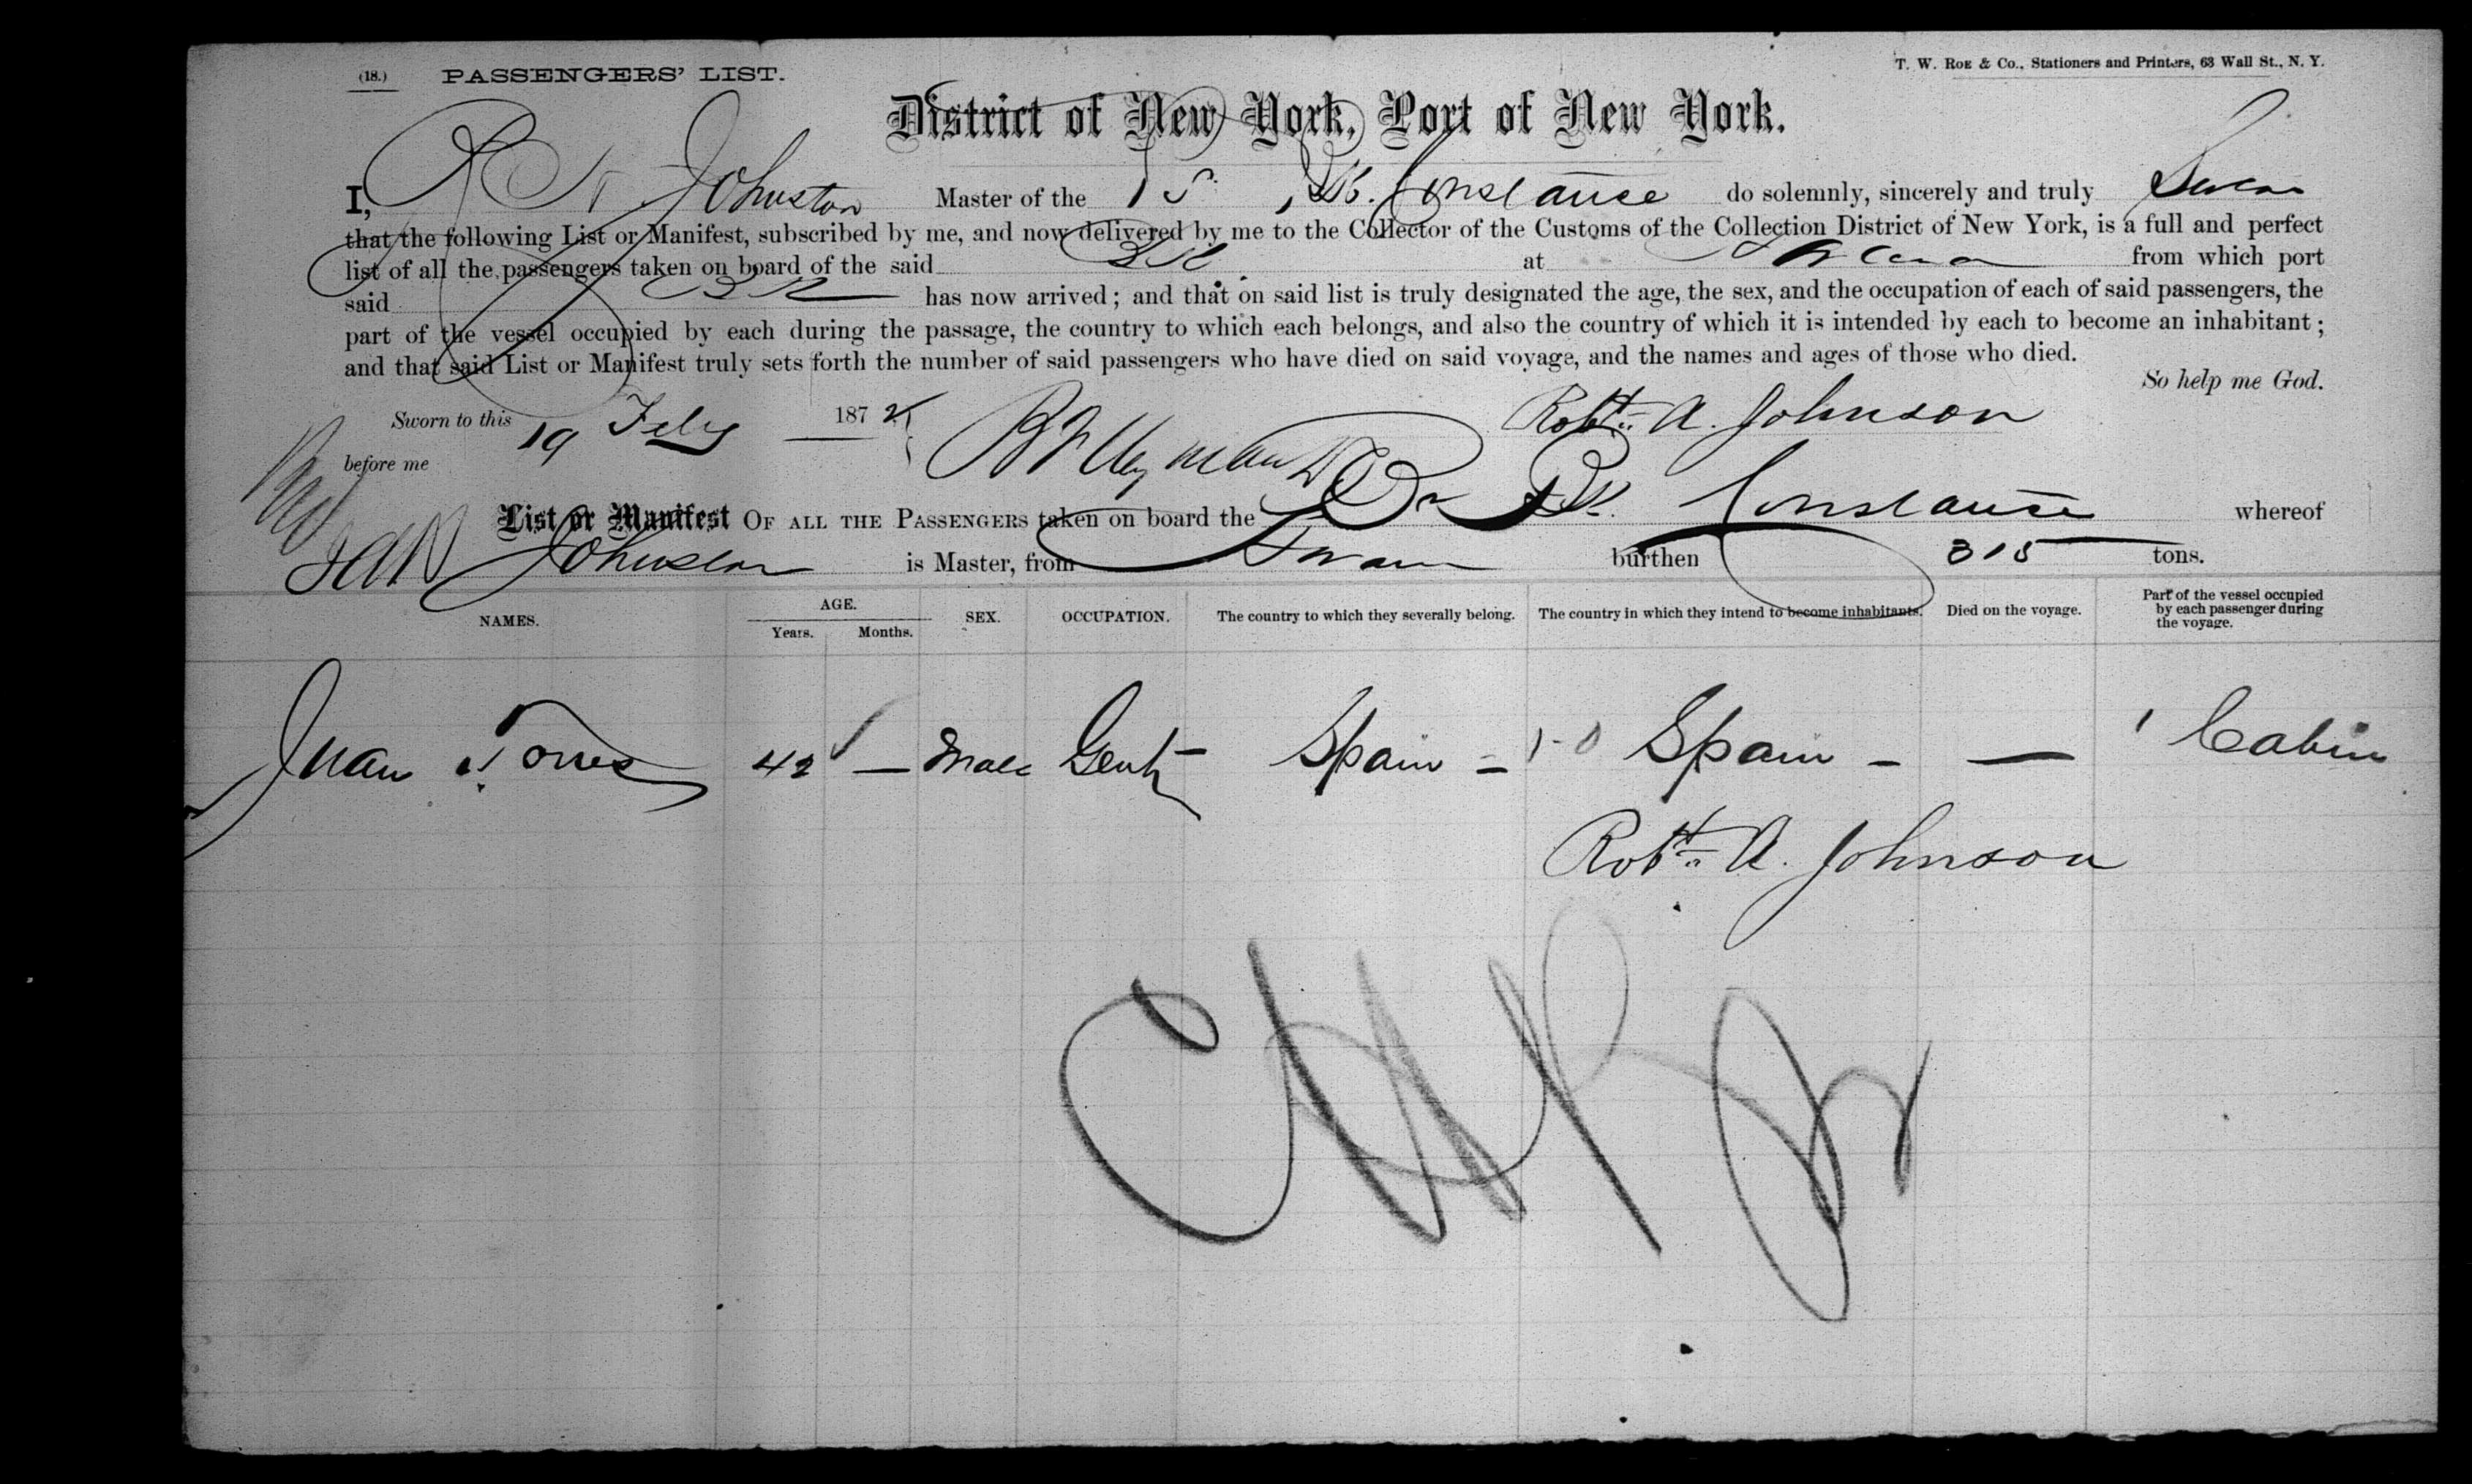 (18.) PASSENGERS' LIST.
T. W. ROE & Co., Stationers and Printers, 63 Wall St., N. Y.
District of New York, Port of New York.
I, Johnston Master of the Bk. Constance do solemnly, sincerely and truly Swear
that the following List or Manifest, subscribed by me, and now delivered by me to the Collector of the Customs of the Collection District of New York, is a full and perfect
list of all the passengers taken on board of the said Bk at from which port
said Bk has now arrived; and that on said list is truly designated the age, the sex, and the occupation of each of said passengers, the
part of the vessel occupied by each during the passage, the country to which each belongs, and also the country of which it is intended by each to become an inhabitant;
and that said List or Manifest truly sets forth the number of said passengers who have died on said voyage, and the names and ages of those who died.
So help me God.
Sworn to this 19 Feby 187 Robt. A. Johnson
before me
List or Manifest OF ALL THE PASSENGERS taken on board the Br Bk. Constance whereof
Johnston is Master, from burthen 315 tons.
NAMES. AGE. Years. Months. SEX. OCCUPATION. The country to which they severally belong. The country in which they intend to become inhabitants. Died on the voyage. Part of the vessel occupied by each passenger during the voyage.
Juan Torres 42 — Male Gent Spain – Spain – — Cabin
Robt. A. Johnson